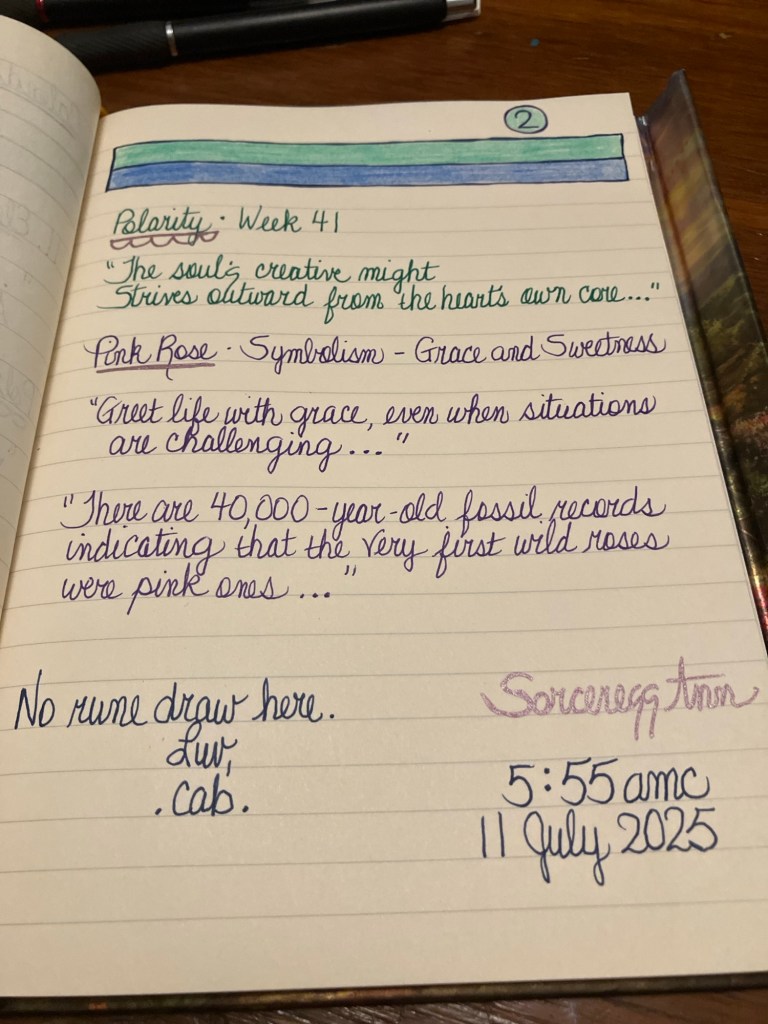 2
Polarity · Week 41
"The soul's creative might
Strives outward from the heart's own core..."
Pink Rose · Symbolism - Grace and Sweetness
"Greet life with grace, even when situations
are challenging..."
"There are 40,000-year-old fossil records
indicating that the very first wild roses
were pink ones..."
No rune draw here.
Luv,
.cab.
Sorceregg Ann
5:55 amc
11 July 2025